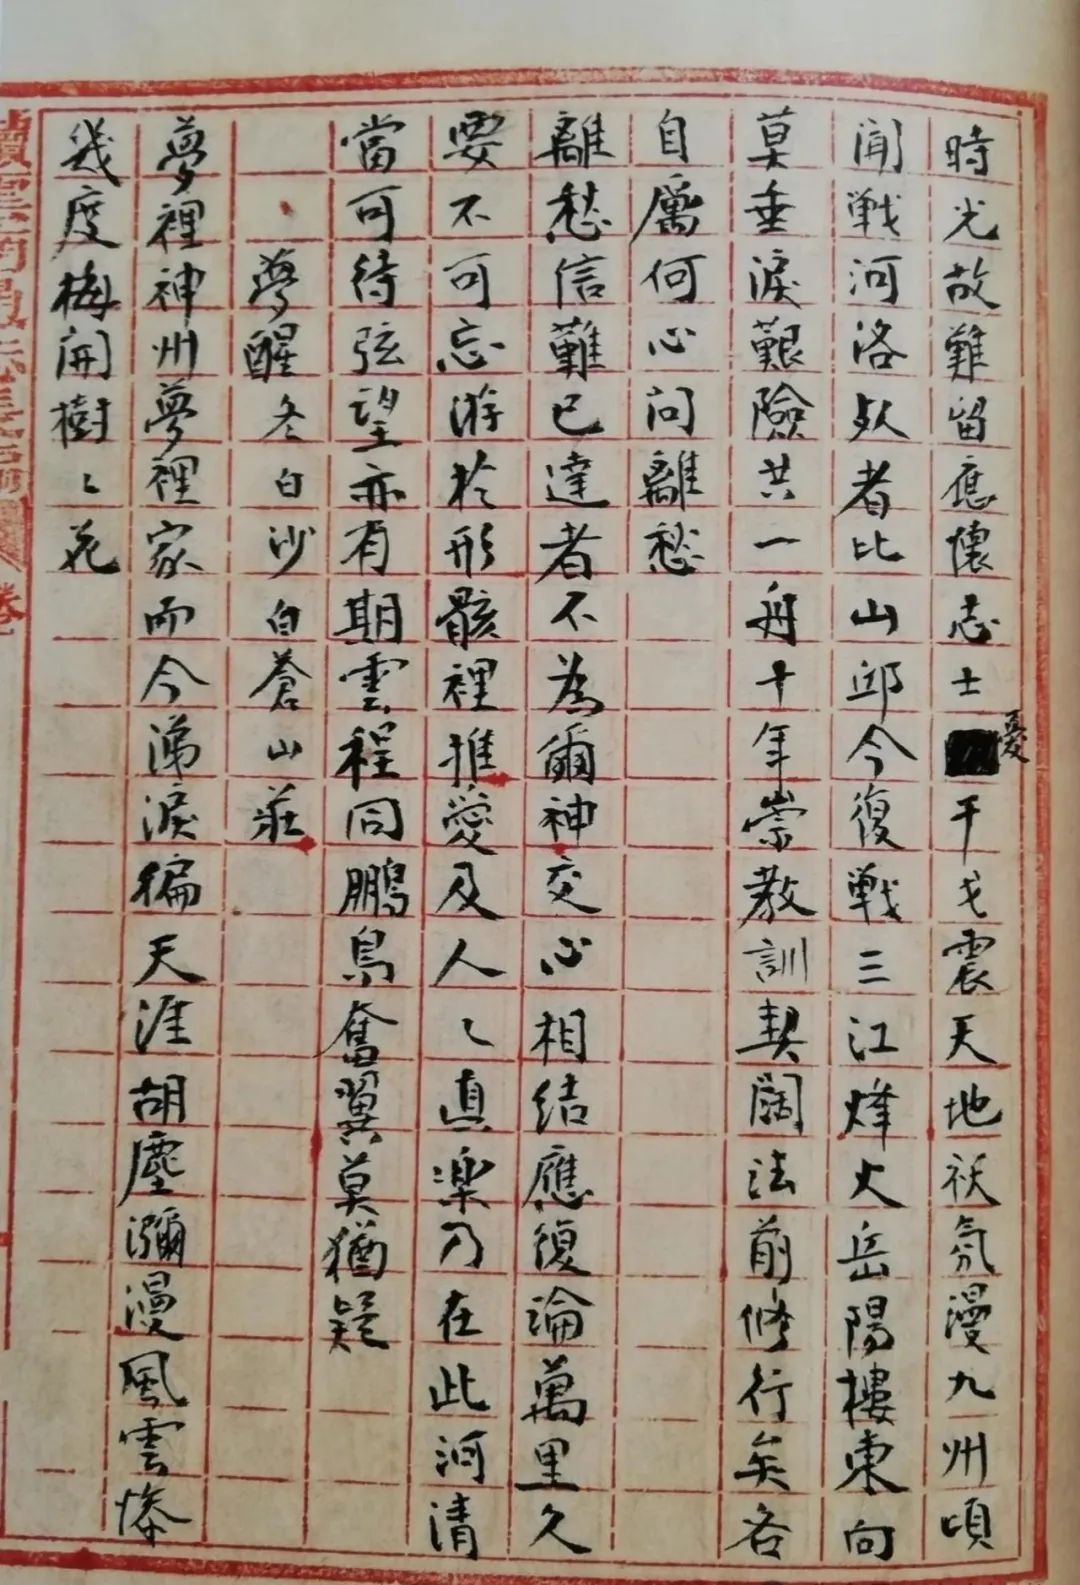 時光故難留應懷志士憂干戈震天地祅氛漫九州頃
聞戰河洛死者比山邱今復戰三江烽火岳陽樓東向
莫垂淚艱險共一舟十年崇教訓契闊法前修行矣各
自厲何心問離愁
離愁信難已達者不為爾神交心相結應復論萬里久
要不可忘游於形骸裡推愛及人〻真樂乃在此河清
當可待弦望亦有期雲程同鵬鳥奮翼莫猶疑
夢醒 冬白沙白蒼山莊
夢裡神州夢裡家而今涕淚徧天涯胡塵瀰漫風雲慘
幾度梅開樹〻花